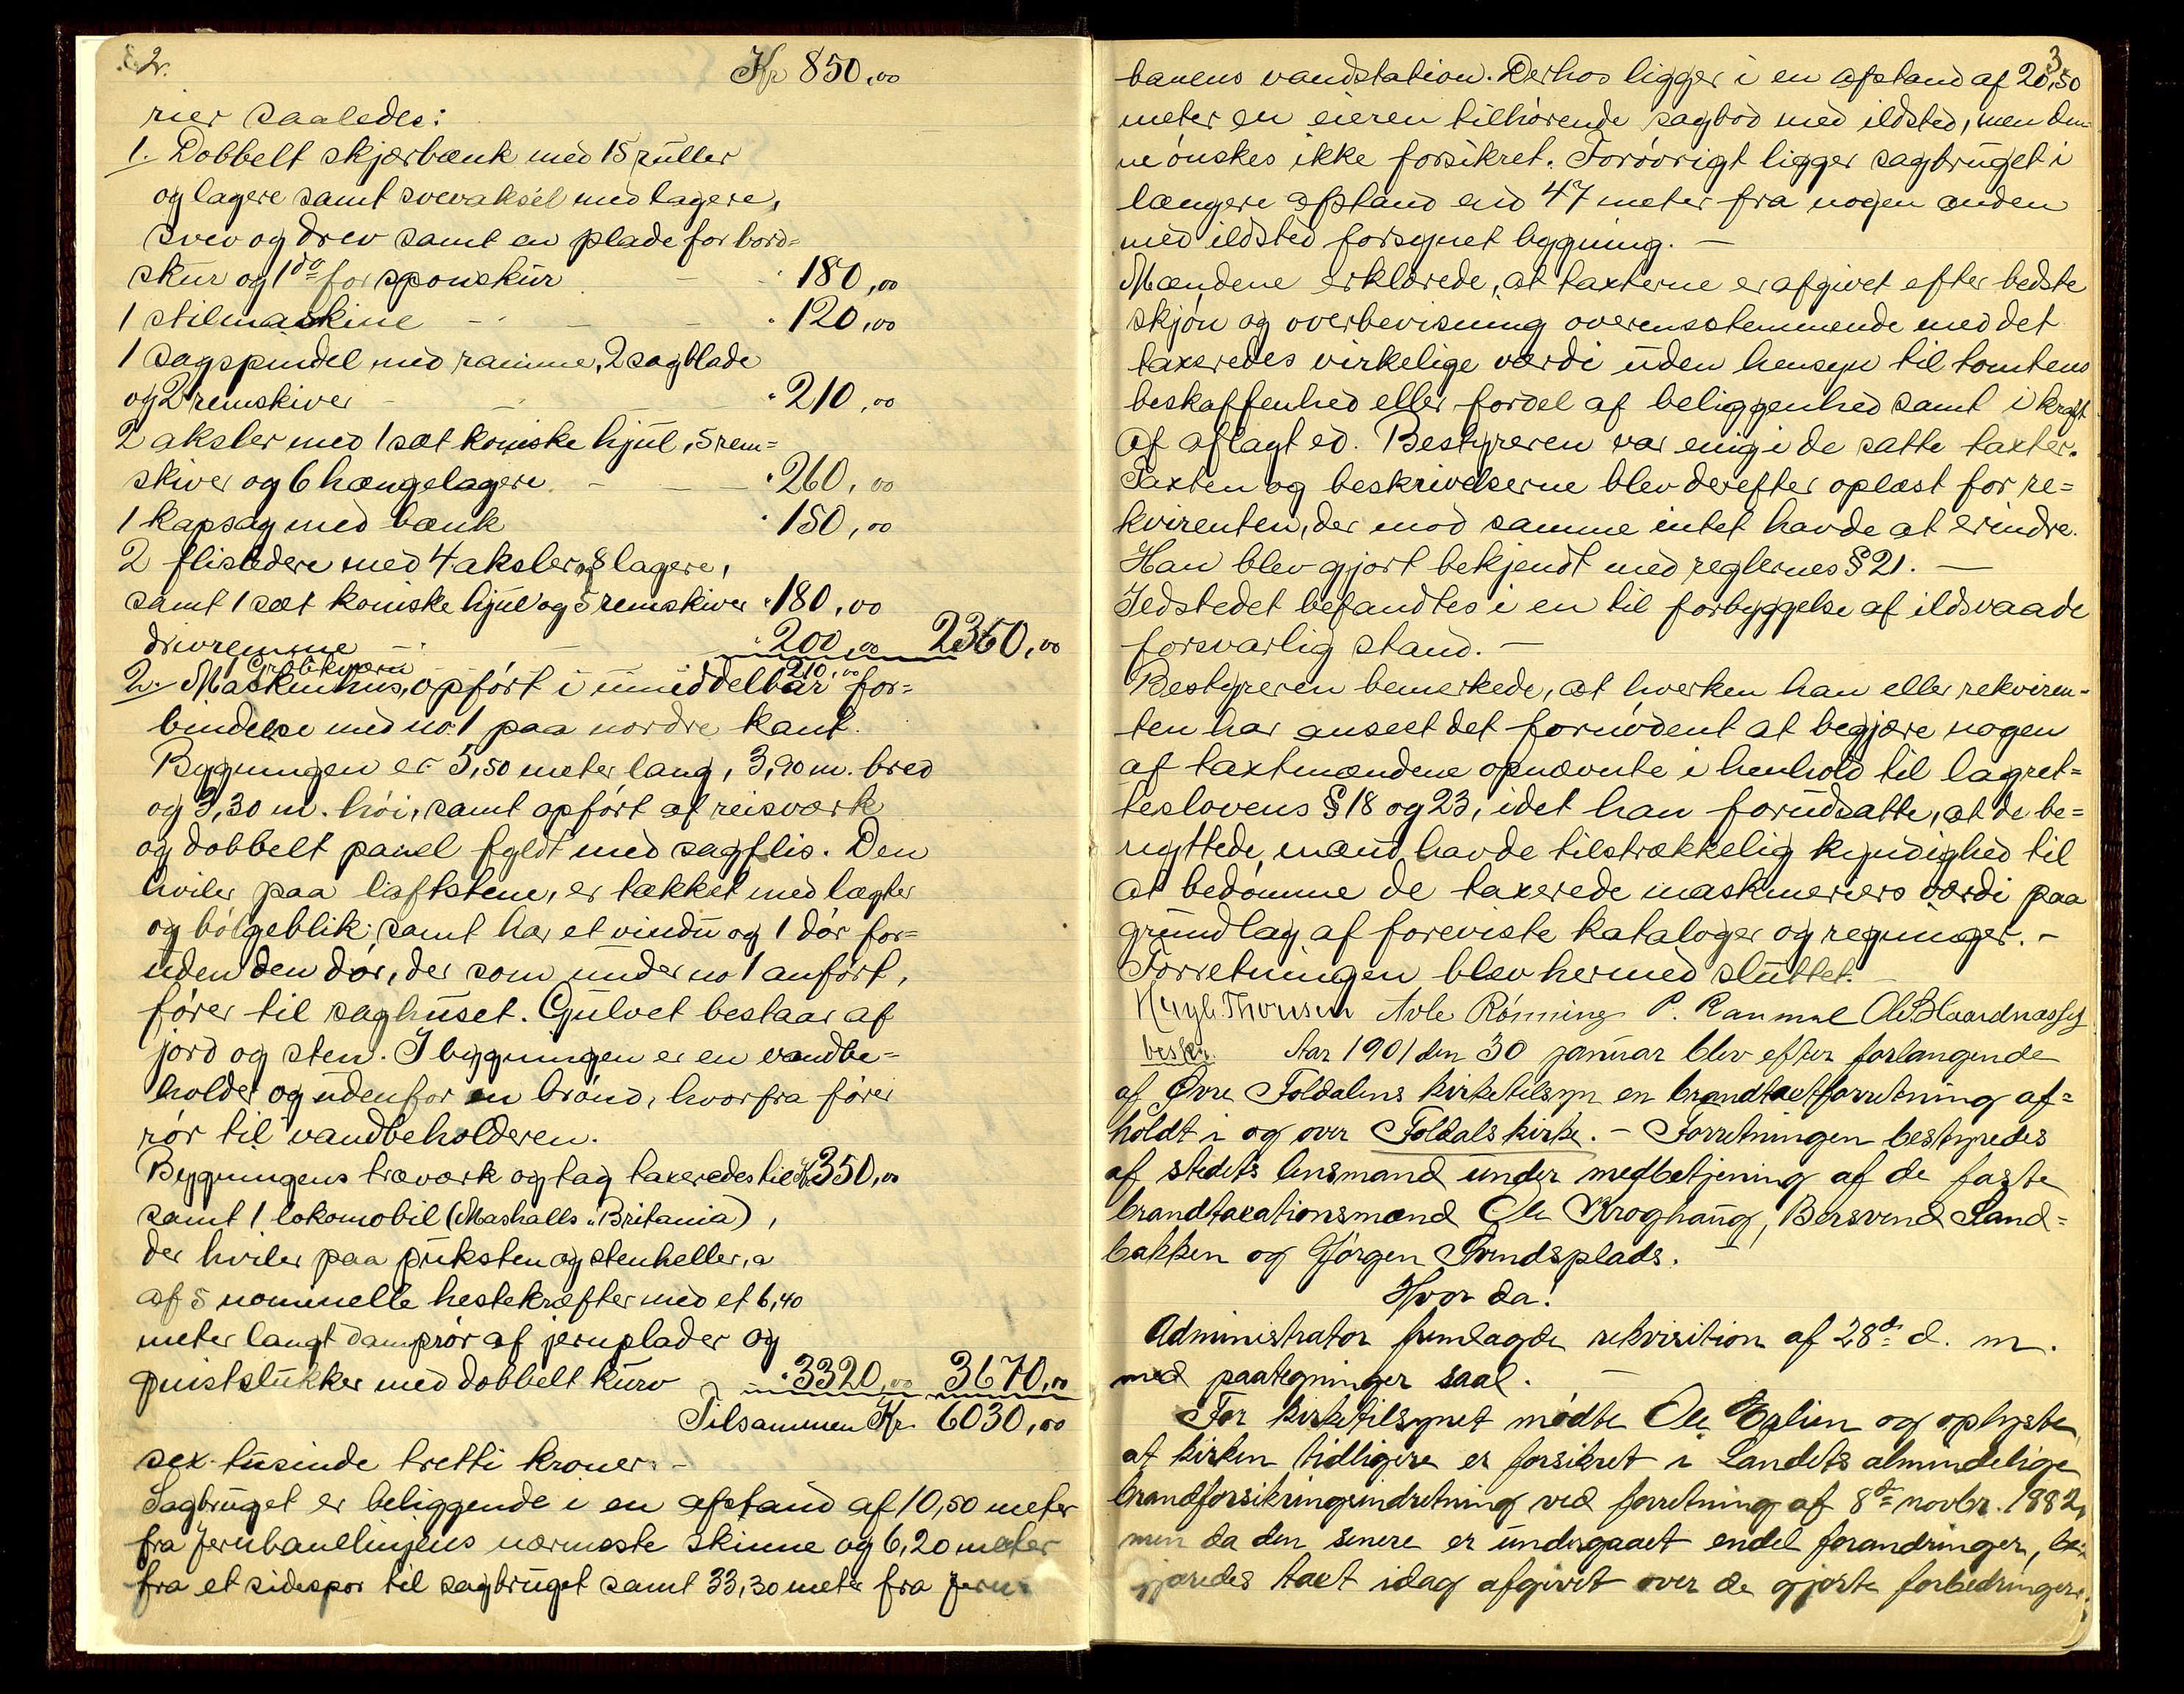 2.
Kr 850,00
rier saaledes:
1. Dobbelt skjærbænk med 15 ruller
og lagere samt svevaksel med lagere,
svev og drev samt en plade for bord=
skur og 1 do for sponskur " 180,00
1 stilmaskine - " 120,00
1 sagspindel med ramme, 2 sagblade
og 2 remskiver - " 210,00
2 aksler med 1 sæt koniske hjul, 5 rem=
skiver og 6 hængelagere - " 260,00
1 kapsag med bænk " 150,00
2 flisledere med 4 aksler og 8 lagere,
samt 1 sæt koniske hjul og 5 remskiver " 180,00
drivremme - " 200,00 2360,00
1 Grøbkværn 210,00
2. Maskinhus, opført i umiddelbar for=
bindelse med no 1 paa nordre kant.
Bygningen er 5,50 meter lang, 3,90 m. bred
og 3,30 m. høi, samt opført af reisværk
og dobbelt panel fyldt med sagflis. Den
hviler paa laftstene, er tækket med lægter
og bølgeblik; samt har et vindu og 1 dør for=
uden den dør, der som under no 1 anført,
fører til saghuset. Gulvet bestaar af
jord og sten. I bygningen er en vandbe=
holder og udenfor en brønd, hvorfra fører
rør til vandbeholderen.
Bygningens træværk og tag taxeredes til Kr 350,00
samt 1 lokomobil (Mashalls "Britania),
der hviler paa puksten og stenheller, a
af 5 nominelle hestekræfter med et 6,40
meter langt damprør af jernplader og
gnistslukker med dobbelt kurv " 3320,00 3670,00
Tilsammen Kr. 6030,00
sex tusinde tretti kroner. -
Sagbruget er beliggende i en afstand af 10,50 meter
fra jernbanelinjens nærmeste skinne og 6,20 meter
fra et sidespor til sagbruget samt 33,30 meter fra jern-
3.
banens vandstation. Derhos ligger i en afstand af 20,50
meter en eieren tilhørende sagbod med ildsted, men den-
ne ønskes ikke forsikret. Forøvrigt ligger sagbruget i
længere afstand end 47 meter fra nogen anden
med ildsted forsynet bygning. -
Mændene erklærede, at taxterne er afgivet efter bedste
skjøn og overbevisning overensstemmende med det
taxeredes virkelige værdi uden hensyn til tomtens
beskaffenhed eller fordel af beliggenhed samt i kraft
af aflagt ed. Bestyreren var enig i de satte taxter.
Taxten og beskrivelserne blev derefter oplæst for re=
kvirenten, der mod samme intet havde at erindre.
Han blev gjort bekjendt med reglernes § 21. -
Ildstedet befandtes i en til forbyggelse af ildsvaade
forsvarlig stand. -
Bestyreren bemerkede, at hverken han eller rekviren-
ten har anseet det fornødent at begjære nogen
af taxtmændene opnævnte i henhold til lagret=
teslovens § 18 og 23, idet han forudsatte, at de be=
nyttede mænd havde tilstrækkelig kyndighed til
at bedømme de taxerede maskineriers værdi paa
grundlag af foreviste kataloger og regninger. -
Forretningen blev hermed sluttet. -
Thoresen Avle Rønning P. Ranmæl
Aar 1901 den 30 januar blev efter forlangende
af Øvre Foldalens kirketilsyn en brandtaxtforretning af=
holdt i og over Foldals kirke. - Forretningen bestyredes
af stedets lensmand under medbetjening af de faste
brandtaxationsmænd Ole Kroghaug, Bersvend Sand=
bakken og Jørgen Svendsplads. -
Hvor da:
Administrator fremlagde rekvisition af 28de d. m.
med paategninger saal. -
For kirketilsynet mødte Ole Eplien og oplyste
at kirken tidligere er forsikret i Landets almindelige
brandforsikringsindretning ved forretning af 8de novbr. 1882,
men da den senere er undergaaet endel forandringer, be=
gjæredes taxt idag afgivet over de gjorte forbedringer.